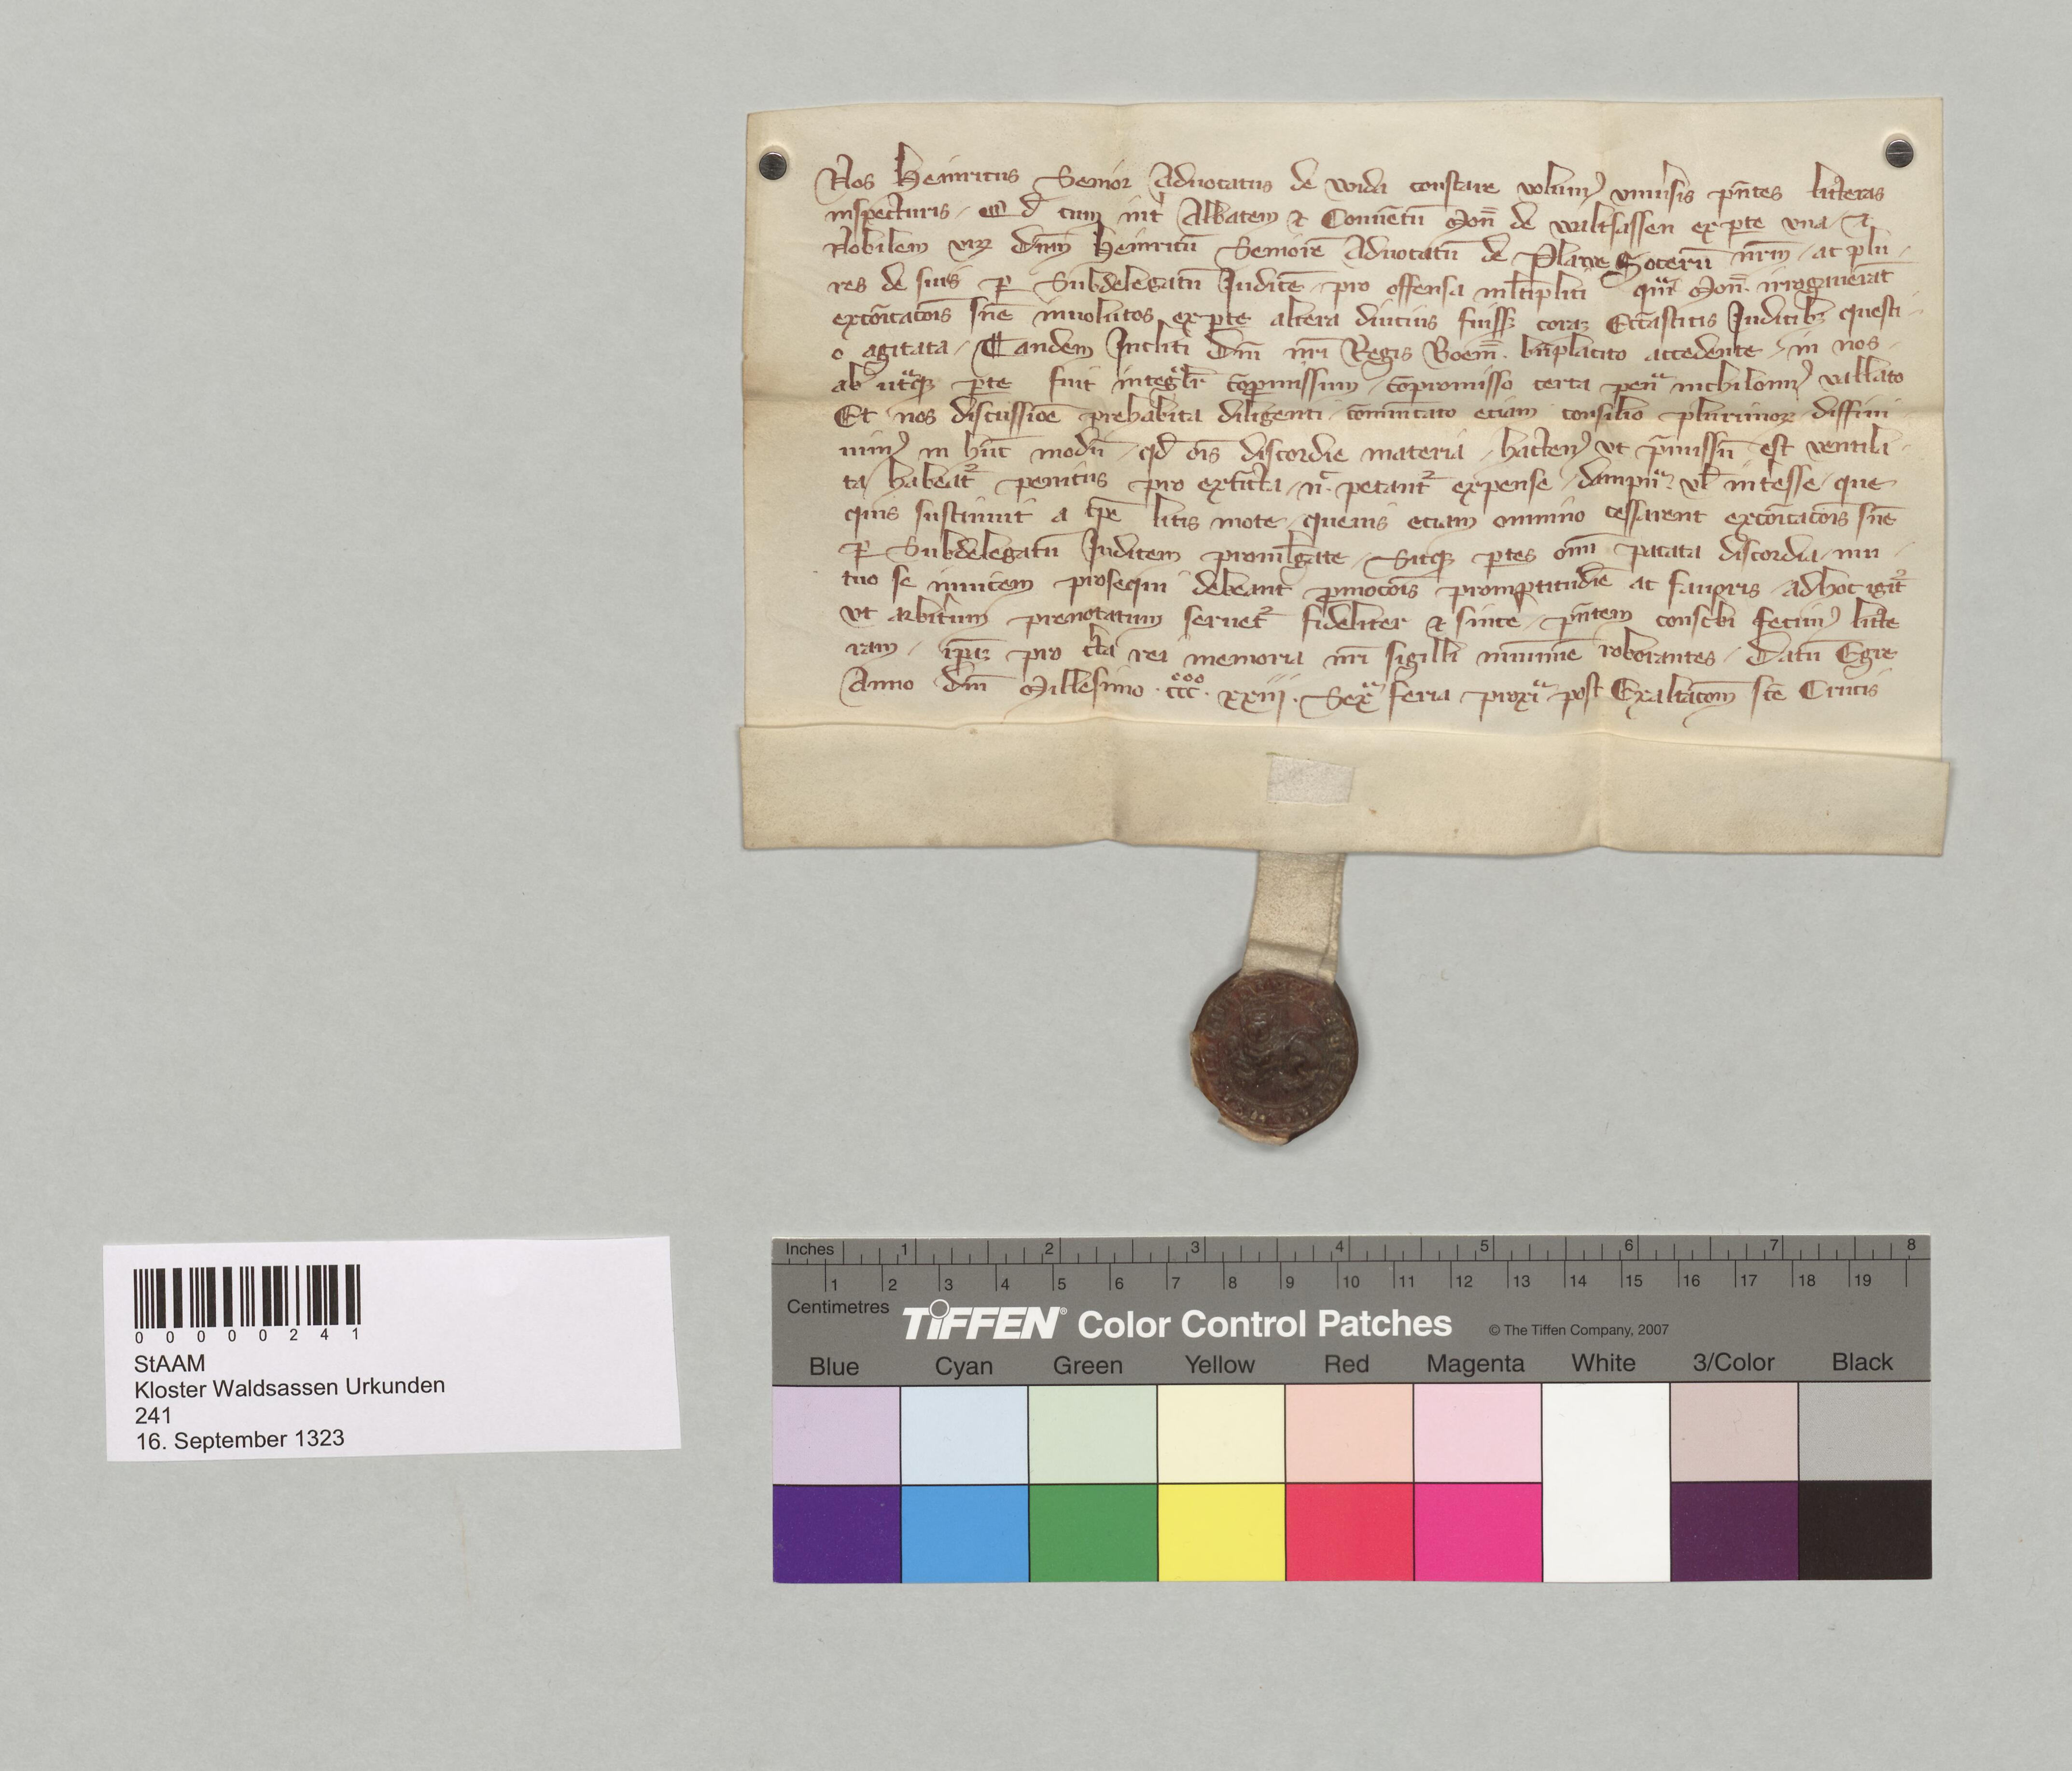 Nos Heinricus Senior Aduocatus de wida constare volum9 vniu'sis pn̄tes litt'eras
inspecturis / Qd̕ cum int' Abbatem ⁊ Conuētū Mon̄ de waltsassen ex p̱te vna / ⁊
Nobilem virꝫ dn̄m Heinricū Seniorē Aduocatū de Plawe Socerū nr̄m / ac plu-
res de suis ꝑ Subdelegatū Judicē / pro offensa ml̄tiplici quā Mon̄. irrogauerāt
excōicacōis sn̄e inuolutos ex p̱te altera diucius fuissꝫ coraꝫ Ecc̄asticis Judicibꝫ questi-
o agitata / Tandem Incliti Dn̄i nr̄i Regis Boem̄. bn̄placito accedente / in nos-
ab utᵃqꝫ p̱te fuit integᵃlr̄ cōpromissum / cōpromisso certa penᵃ nichilomin9 vallato
Et nos discussioē prehabita diligenti / cōmunicato eciam consilio plurimorꝫ / diffini-
uim9 in hūc modū / qd̕ oīs discordie materia / hacten9 vt p̄missū est ventila-
ta / habeat² penitus pro extīcta / nͨ. petant² expense / dampnᵃ. vl̄ int'esse / que
quis sustinuit a tp̄e litis mote / queuis eciam omnino cessarent excōicacōis sn̄e
ꝑ Subdelegatū Judicem promulgate / Sicqꝫ p̱tes om̄i pacata discordia / mu-
tuo se inuicem prosequi debeant p̱mocōis promptitudīe ac fauoris / adhoc igit²
vt arbit'um prenotatum seruet² fideliter ⁊ since / pn̄tem conscbi fecim9 litt'e
ram / ip̄aꝫ pro cl̄a rei memoria nr̄i sigilli munimīe roborantes / Datū Egre
Anno dn̄i Millesimo . ccc°°°. xxiij . Sexᵃ feria proxīᵃ post Exaltacōm sc̄e Crucis
0 0 0 0 0 2 4 1
StAAM
Kloster Waldsassen Urkunden
241
16. September 1323
Inches 1 2 3 4 5 6 7 8
1 2 3 4 5 6 7 8 9 10 11 12 13 14 15 16 17 18 19
Centimetres
TIFFEN® Color Control Patches © The Tiffen Company, 2007
Blue Cyan Green Yellow Red Magenta White 3/Color Black